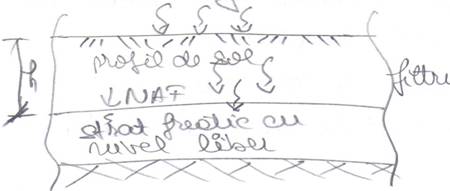 profil de sol
h
filtru
NAF
strat freatic cu
nivel liber